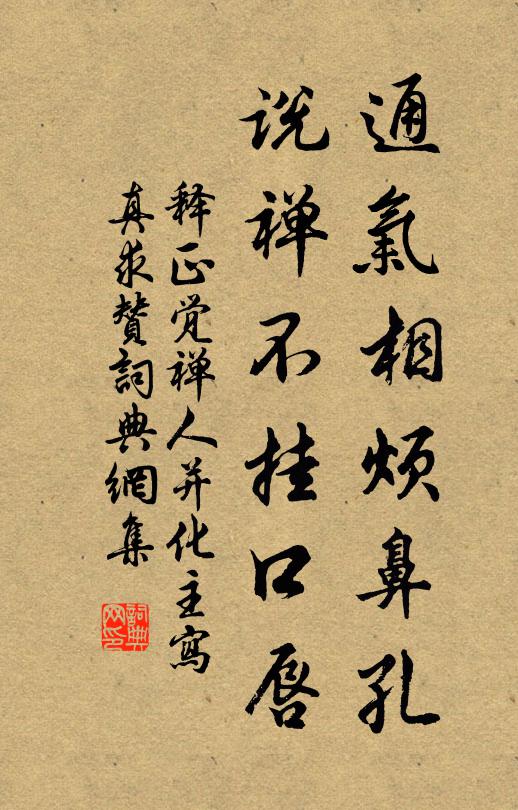 通氣相煩鼻孔
説禅不挂口唇
释正觉禅人并化主寫
真求贊詞典網集
詞典
网印